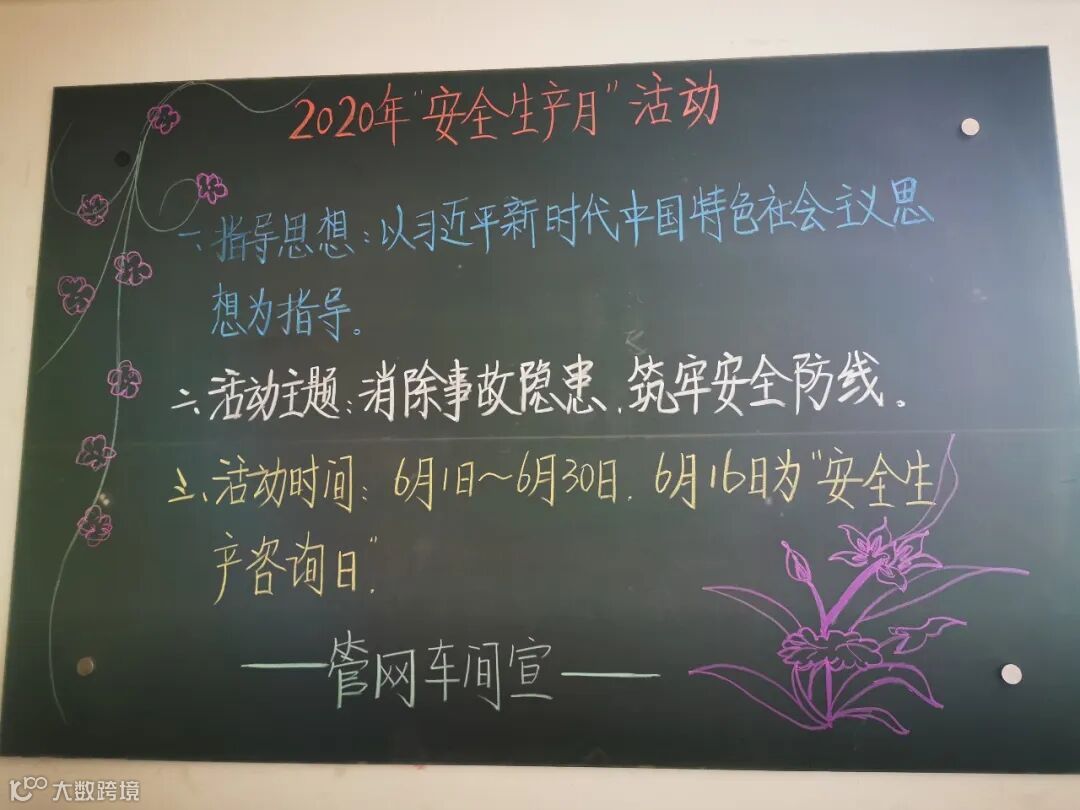 2020年“安全生产月”活动
一、指导思想:以习近平新时代中国特色社会主义思
想为指导。
二、活动主题:消除事故隐患、筑牢安全防线。
三、活动时间:6月1日～6月30日.6月16日为“安全生
产咨询日”
——管网车间宣——
大数跨境